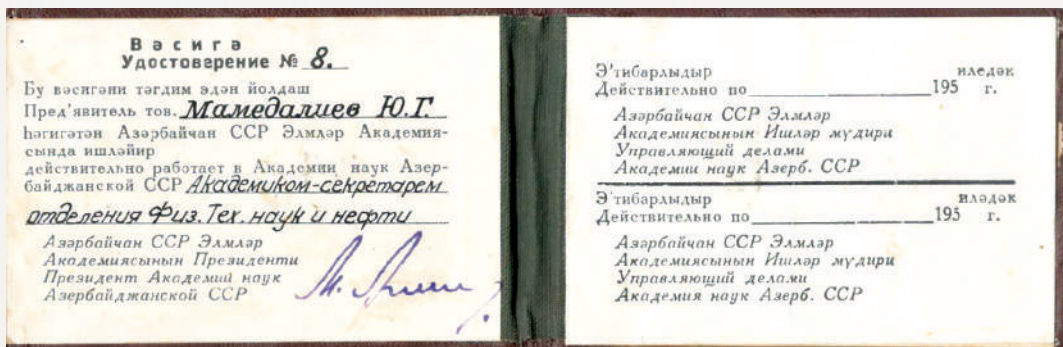 Вәсигә
Удостоверение № 8.
Бу вәсигәни тәгдим эдән йолдаш
Пред'явитель тов. Мамедалиев Ю.Г.
һәгигәтән Азәрбайҹан ССР Элмләр Академия-
сында ишләйир
действительно работает в Академии наук Азер-
байджанской ССР Академиком-секретарем
отделения Физ. Тех. наук и нефти
Азәрбайҹан ССР Элмләр
Академиясынын Президенти
Президент Академии наук
Азербайджанской ССР
Э'тибарлыдыр иледәк
Действительно по 195 г.
Азәрбайҹан ССР Элмләр
Академиясынын Ишләр мүдири
Управляющий делами
Академии наук Азерб. ССР
Э'тибарлыдыр иләдәк
Действительно по 195 г.
Азәрбайҹан ССР Элмләр
Академиясынын Ишләр мүдири
Управляющий делами
Академия наук Азерб. ССР